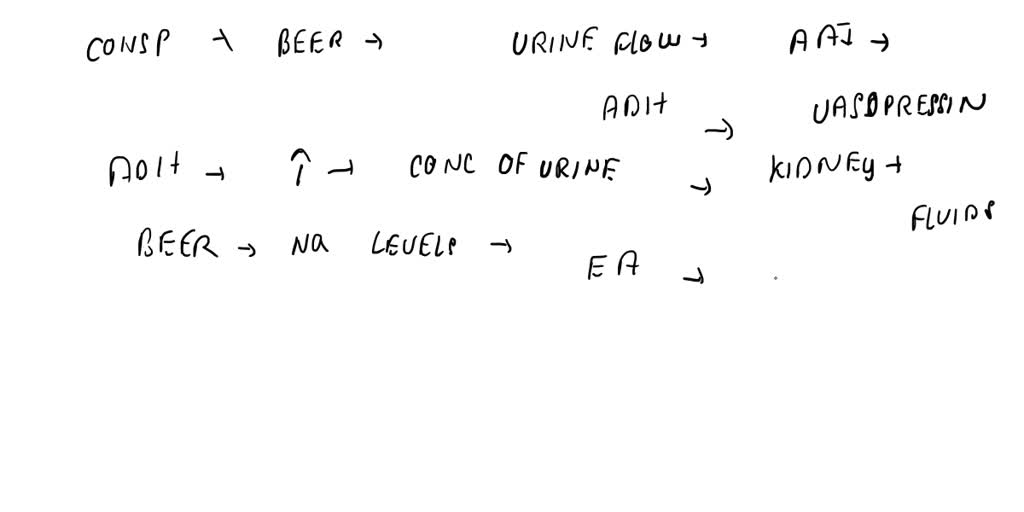 CONSP → BEER → URINE FLOW → AAI →
ADH → VASOPRESSIN
ADH → ↑ → CONC OF URINE → KIDNEY →
FLUIDS
BEER → Na LEVELS →
EA →